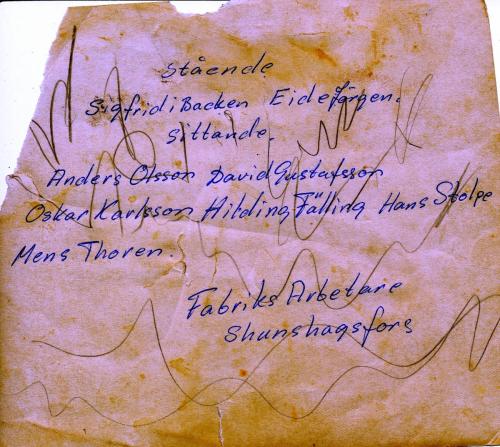 Stående
Sigfrid i Backen Eide Jörgen.
Sittande.
Anders Olsson David Gustafsson
Oskar Karlsson Hilding Fälling Hans Stolpe
Mens Thoren.
Fabriks Arbetare
Shunshagsfors